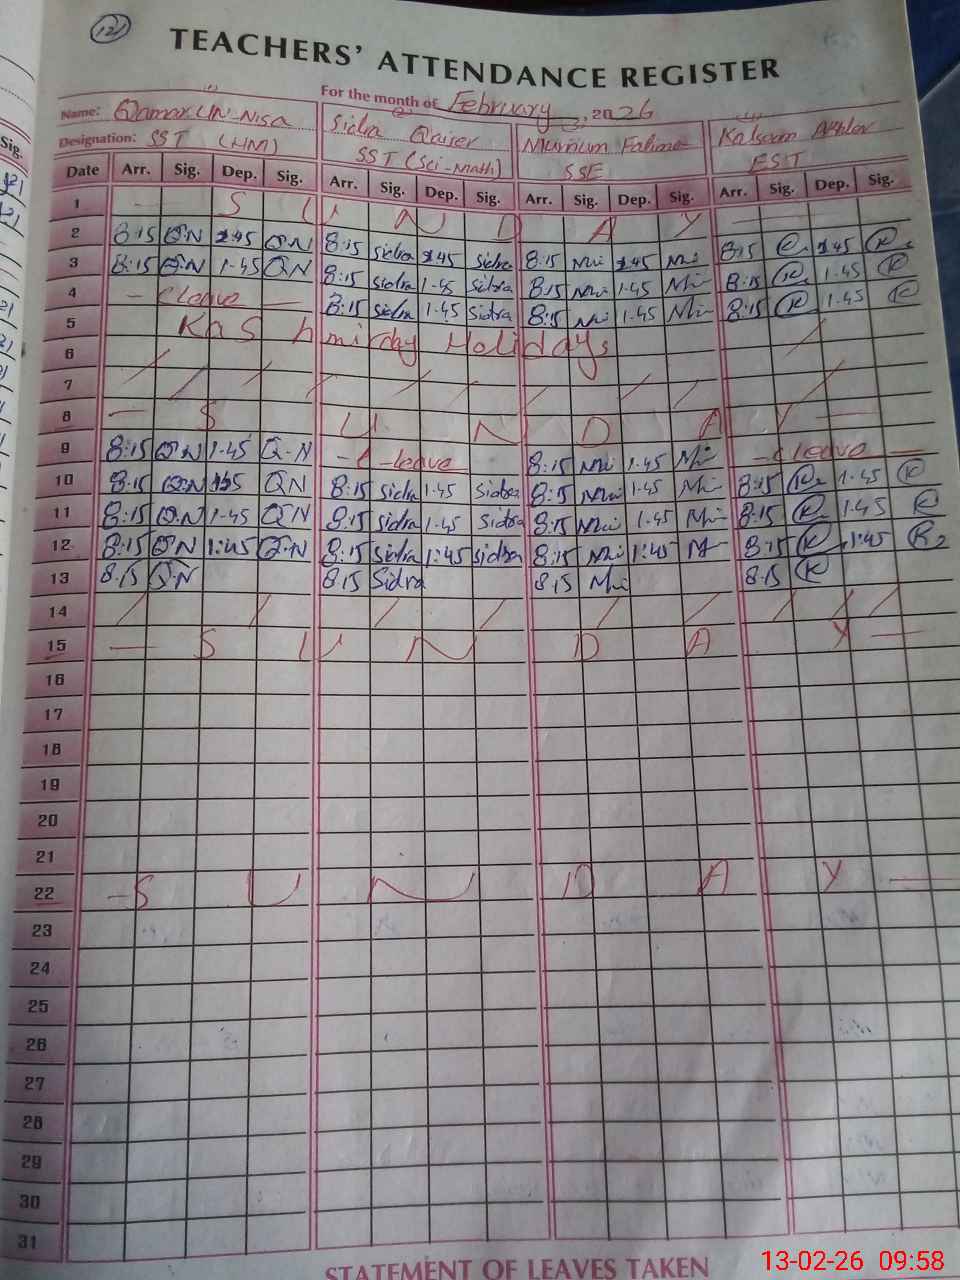 121
TEACHERS' ATTENDANCE REGISTER
For the month of February, 2026
Name: Qamar Un Nisa Sidra Qaiser Fatima Kalsoom Akhtar
Designation: SST (HM) SST (Sci-Math) SSE EST
Date Arr. Sig. Dep. Sig. Arr. Sig. Dep. Sig. Arr. Sig. Dep. Sig. Arr. Sig. Dep. Sig.
1 — S U N D A Y —
2 8:15 Q.N 1.45 Q.N 8:15 sidra 1.45 sidra 8:15 1.45 8:15 K 1.45 K
3 8:15 Q.N 1.45 QN 8:15 sidra 1.45 sidra 8:15 1.45 8:15 K 1.45 K
4 – C leave — 8:15 sidra 1.45 sidra 8:15 1.45 8:15 K 1.45 K
5 Kashmir day Holidays
6
7
8 — S U N D A Y —
9 8:15 Q.N 1.45 Q.N – C-leave 8:15 1.45 – C leave —
10 8:15 Q.N QN 8:15 sidra 1.45 sidra 8:15 1.45 8:15 K 1.45 K
11 8:15 Q.N 1.45 QN 8:15 sidra 1.45 sidra 8:15 1.45 8:15 K 1.45 K
12 8:15 Q.N 1:45 Q.N 8:15 sidra 1:45 sidra 8:15 1:45 8:15 K 1:45
13 8.15 Q.N 8.15 Sidra 8.15 8.15 K
14
15 — S U N D A Y —
16
17
18
19
20
21
22 — S U N D A Y —
23
24
25
26
27
28
29
30
31
STATEMENT OF LEAVES TAKEN
13-02-26 09:58